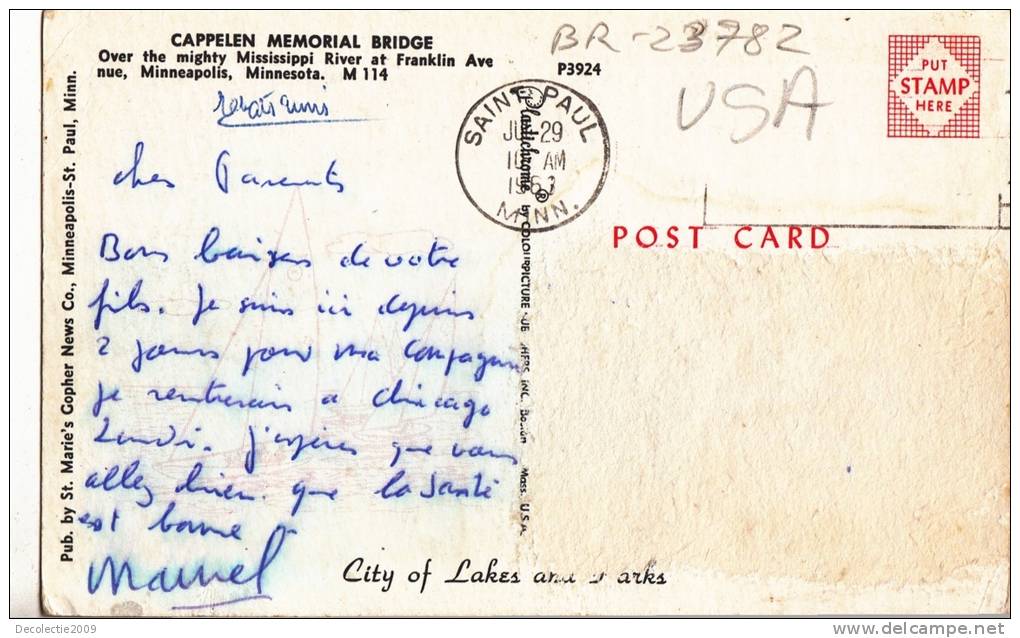 CAPPELEN MEMORIAL BRIDGE
Over the mighty Mississippi River at Franklin Ave
nue, Minneapolis, Minnesota. M 114
P3924
BR-23782
USA
PUT
STAMP
HERE
SAINT PAUL
29
AM
MINN.
POST CARD
cher Parents
Bons baisers de votre
fils. Je suis ici depuis
2 jours pour ma Compagnie
je rentrerais a chicago
Lundi. j'espère que vous
allez bien que la santé
est bonne
Marcel
City of Lakes and Parks
Pub. by St. Marie's Gopher News Co., Minneapolis-St. Paul, Minn.
Plastichrome ® by COLOURPICTURE
INC. Boston Mass. U.S.A.
Decolectie2009